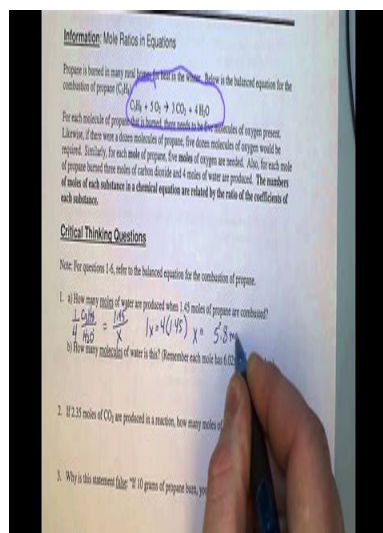 Information: Mole Ratios in Equations
Propane is burned in many rural homes for heat in the winter. Below is the balanced equation for the
combustion of propane (C₃H₈).
C₃H₈ + 5 O₂ → 3 CO₂ + 4 H₂O
For each molecule of propane that is burned, there needs to be five molecules of oxygen present.
Likewise, if there were a dozen molecules of propane, five dozen molecules of oxygen would be
required. Similarly, for each mole of propane, five moles of oxygen are needed. Also, for each mole
of propane burned three moles of carbon dioxide and 4 moles of water are produced. The numbers
of moles of each substance in a chemical equation are related by the ratio of the coefficients of
each substance.
Critical Thinking Questions
Note: For questions 1-6, refer to the balanced equation for the combustion of propane.
1. a) How many moles of water are produced when 1.45 moles of propane are combusted?
1/4 C₃H₈/H₂O = 1.45/x 1x=4(1.45) x= 5.8 m
b) How many molecules of water is this? (Remember each mole has 6.02
2. If 2.35 moles of CO₂ are produced in a reaction, how many moles of
3. Why is this statement false: "If 10 grams of propane burn, you